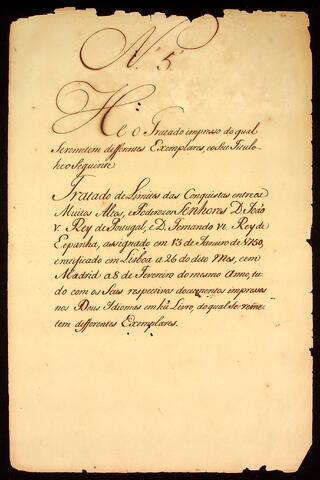 N.º 5.
He o Tratado impresso do qual
Seremetem differentes Exemplares, eo Seu Titulo
he o Seguinte
Tratado de Limites das Conquistas entre os
Muitos Altos, Poderozos Senhores D. João
V. Rey de Portugal, e D. Fernando VI. Rey de
Espanha, assignado em 13 de Janeiro de 1750,
eratificado em Lisboa a 26 do dito Mes, eem
Madrid a 8 de Fevreiro do mesmo Anno, tu-
do com os Seus respectivos documentos impressos
nos Dous Idiomas em hũ Livro, do qual Se reme-
tem differentes Exemplares.